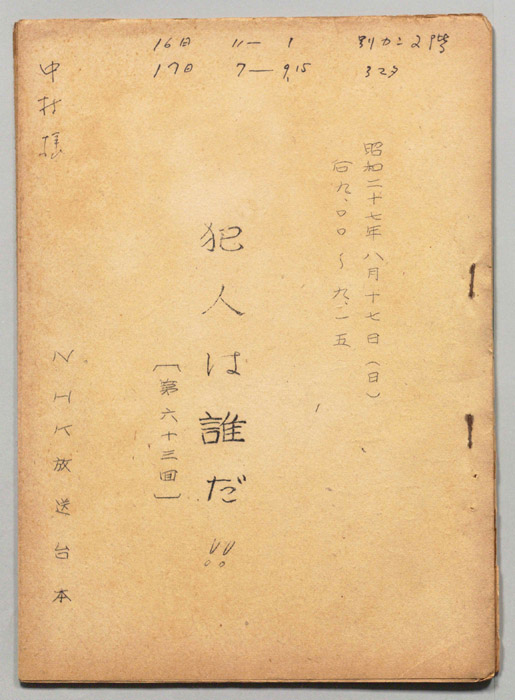 16日 11ー1 別カン2階
17日 7ー9,15 3スタ
昭和二十七年八月十七日（日）
后九、〇〇〜九、一五
犯人は誰だ!!
［第六十三回］
中村様
NHK放送台本